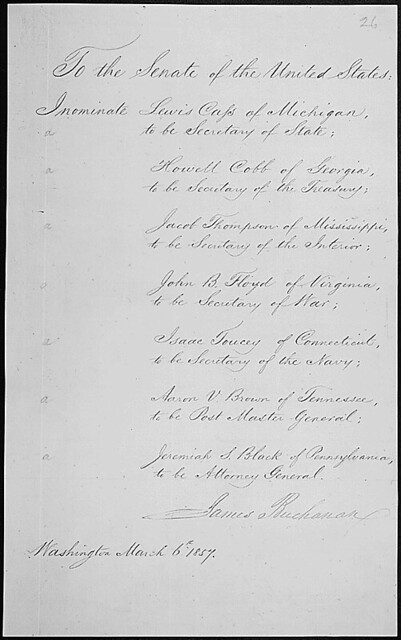 26
To the Senate of the United States:
I nominate Lewis Cass of Michigan,
a to be Secretary of State;
a Howell Cobb of Georgia,
to be Secretary of the Treasury;
a Jacob Thompson of Mississippi,
to be Secretary of the Interior;
John B. Floyd of Virginia,
to be Secretary of War;
a Isaac Toucey of Connecticut,
to be Secretary of the Navy;
a Aaron V. Brown of Tennessee,
to be Post Master General;
a Jeremiah S. Black of Pennsylvania,
to be Attorney General.
James Buchanan
Washington March 6th 1857.